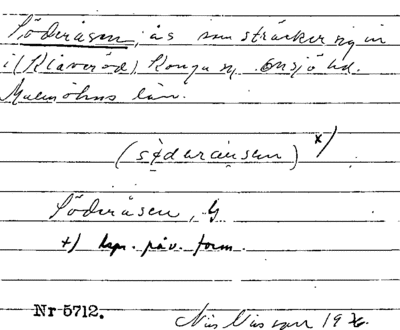 Söderåsen, ås som sträcker sig in
i (Klåveröd) Konga sn. Onsjö hd.
Malmöhus län.
(södaråusen) x)
Söderåsen,
+) uppr. form.
Nr 5712.
Nils Nilsson 19